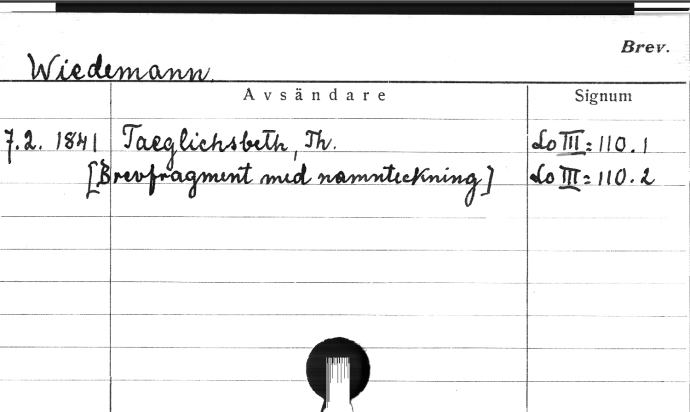 Brev.
Wiedemann.
Avsändare Signum
7.2. 1841 Taeglichsbeth, Th. Lo III:110.1
[Brevfragment med namnteckning] Lo III:110.2